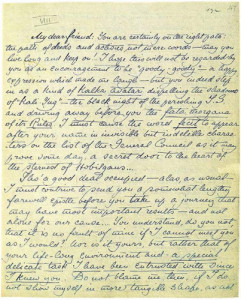 My dear friend: You are certainly on the right path;
the path of deeds and actions, not mere words — may you
live long and keep on! I hope this will not be regarded by
you as an encouragement to be "goody goody" — a happy
expression which made me laugh — but you indeed step
in as a kind of Kalka Avatar dispelling the shadows
of "Kali-yug" — the black night of the perishing T.S.
and driving away before you the fata Morgana
of its Rules. I must cause the word fecit to appear
after your name in invisible but indelible charac-
ters on the list of the General Council, as it may
prove some day a secret door to the heart of
the sternest of
Tho' a good deal occupied — alas, as usual —
I must contrive to send you a somewhat lengthy
farewell epistle before you take up a journey that
may have most important results — and not
alone for our cause. You understand, do you not
that it is no fault of mine if I cannot meet you
as I would? Nor is it yours, but rather that of
your life-long environment and a special
delicate task I have been entrusted with since
I knew you. Do not blame me then, if I do
not show myself in more tangible shape, as not